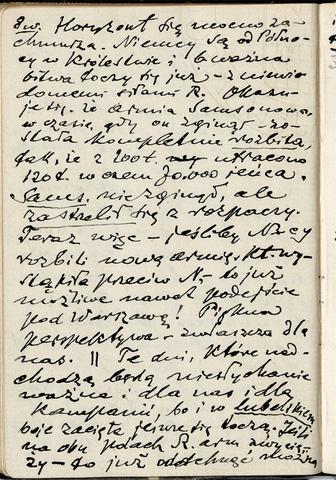 8 w. Horyzont się mocno za-
chmurza. Niemcy są od Półno-
cy w Królestwie i poważna
bitwa toczy się już – z niewia-
domemi siłami R. Okazu-
je się, że armia Samsonowa,
w czasie, gdy on zginął – zo-
stała kompletnie rozbita,
tak, że z 200 t. utracono
120 t. w czem 70.000 jeńca.
Sams. nie zginął, ale
zastrzelił się z rozpaczy.
Teraz więc – jeśliby N-cy
rozbili nową armię, kt. wy-
stąpiła przeciw N, – to już
możliwe nawet podejście
pod Warszawę! Piękna
perspektywa – zwłaszcza dla
nas. || Te dni, które nad-
chodzą będą niesłychanie
ważne i dla nas i dla
kampanii, bo i w Lubelskiem
boje zacięte jeszcze się toczą. Jeśli
na obu polach R. arm. zwycię-
ży – to już odetchnąć można